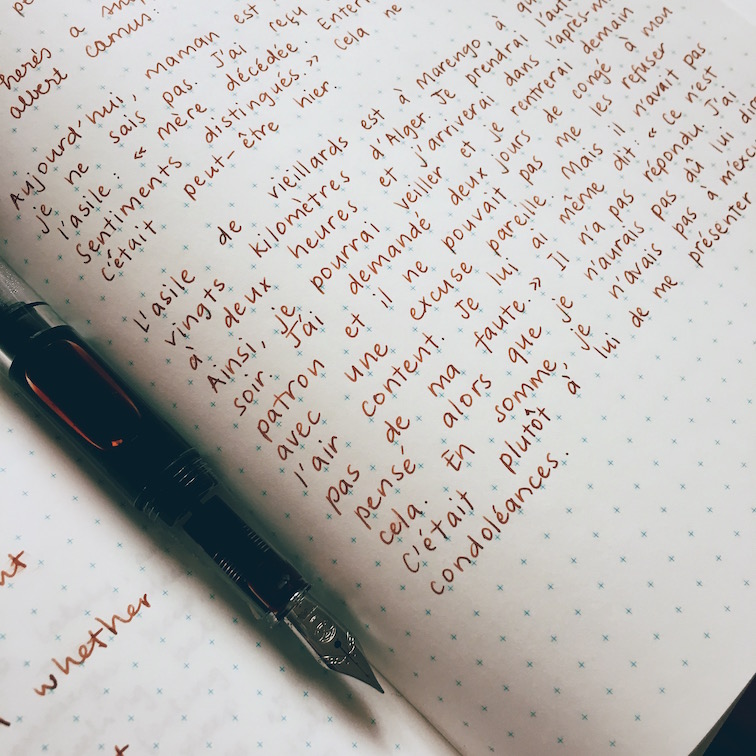 here's a
albert camus:
Aujourd'hui, maman est
je ne sais pas. J'ai reçu
l'asile: « mère décédée.
Sentiments distingués.» Cela ne
C'était peut-être hier.
L'asile de vieillards est à Marengo, à
vingts kilomètres d'Alger. Je prendrai
à deux heures et j'arriverai dans
Ainsi, je pourrai veiller et je rentrerai demain
soir. J'ai demandé deux jours de congé à mon
patron et il ne pouvait pas me les refuser
avec une excuse pareille. Mais il n'avait pas
l'air content. Je lui ai même dit: « Ce n'est
pas de ma faute.» Il n'a pas répondu. J'ai
pensé alors que je n'aurais pas dû lui
cela. En somme, je n'avais pas à
C'était plutôt à lui de me présenter
condoléances.
whether